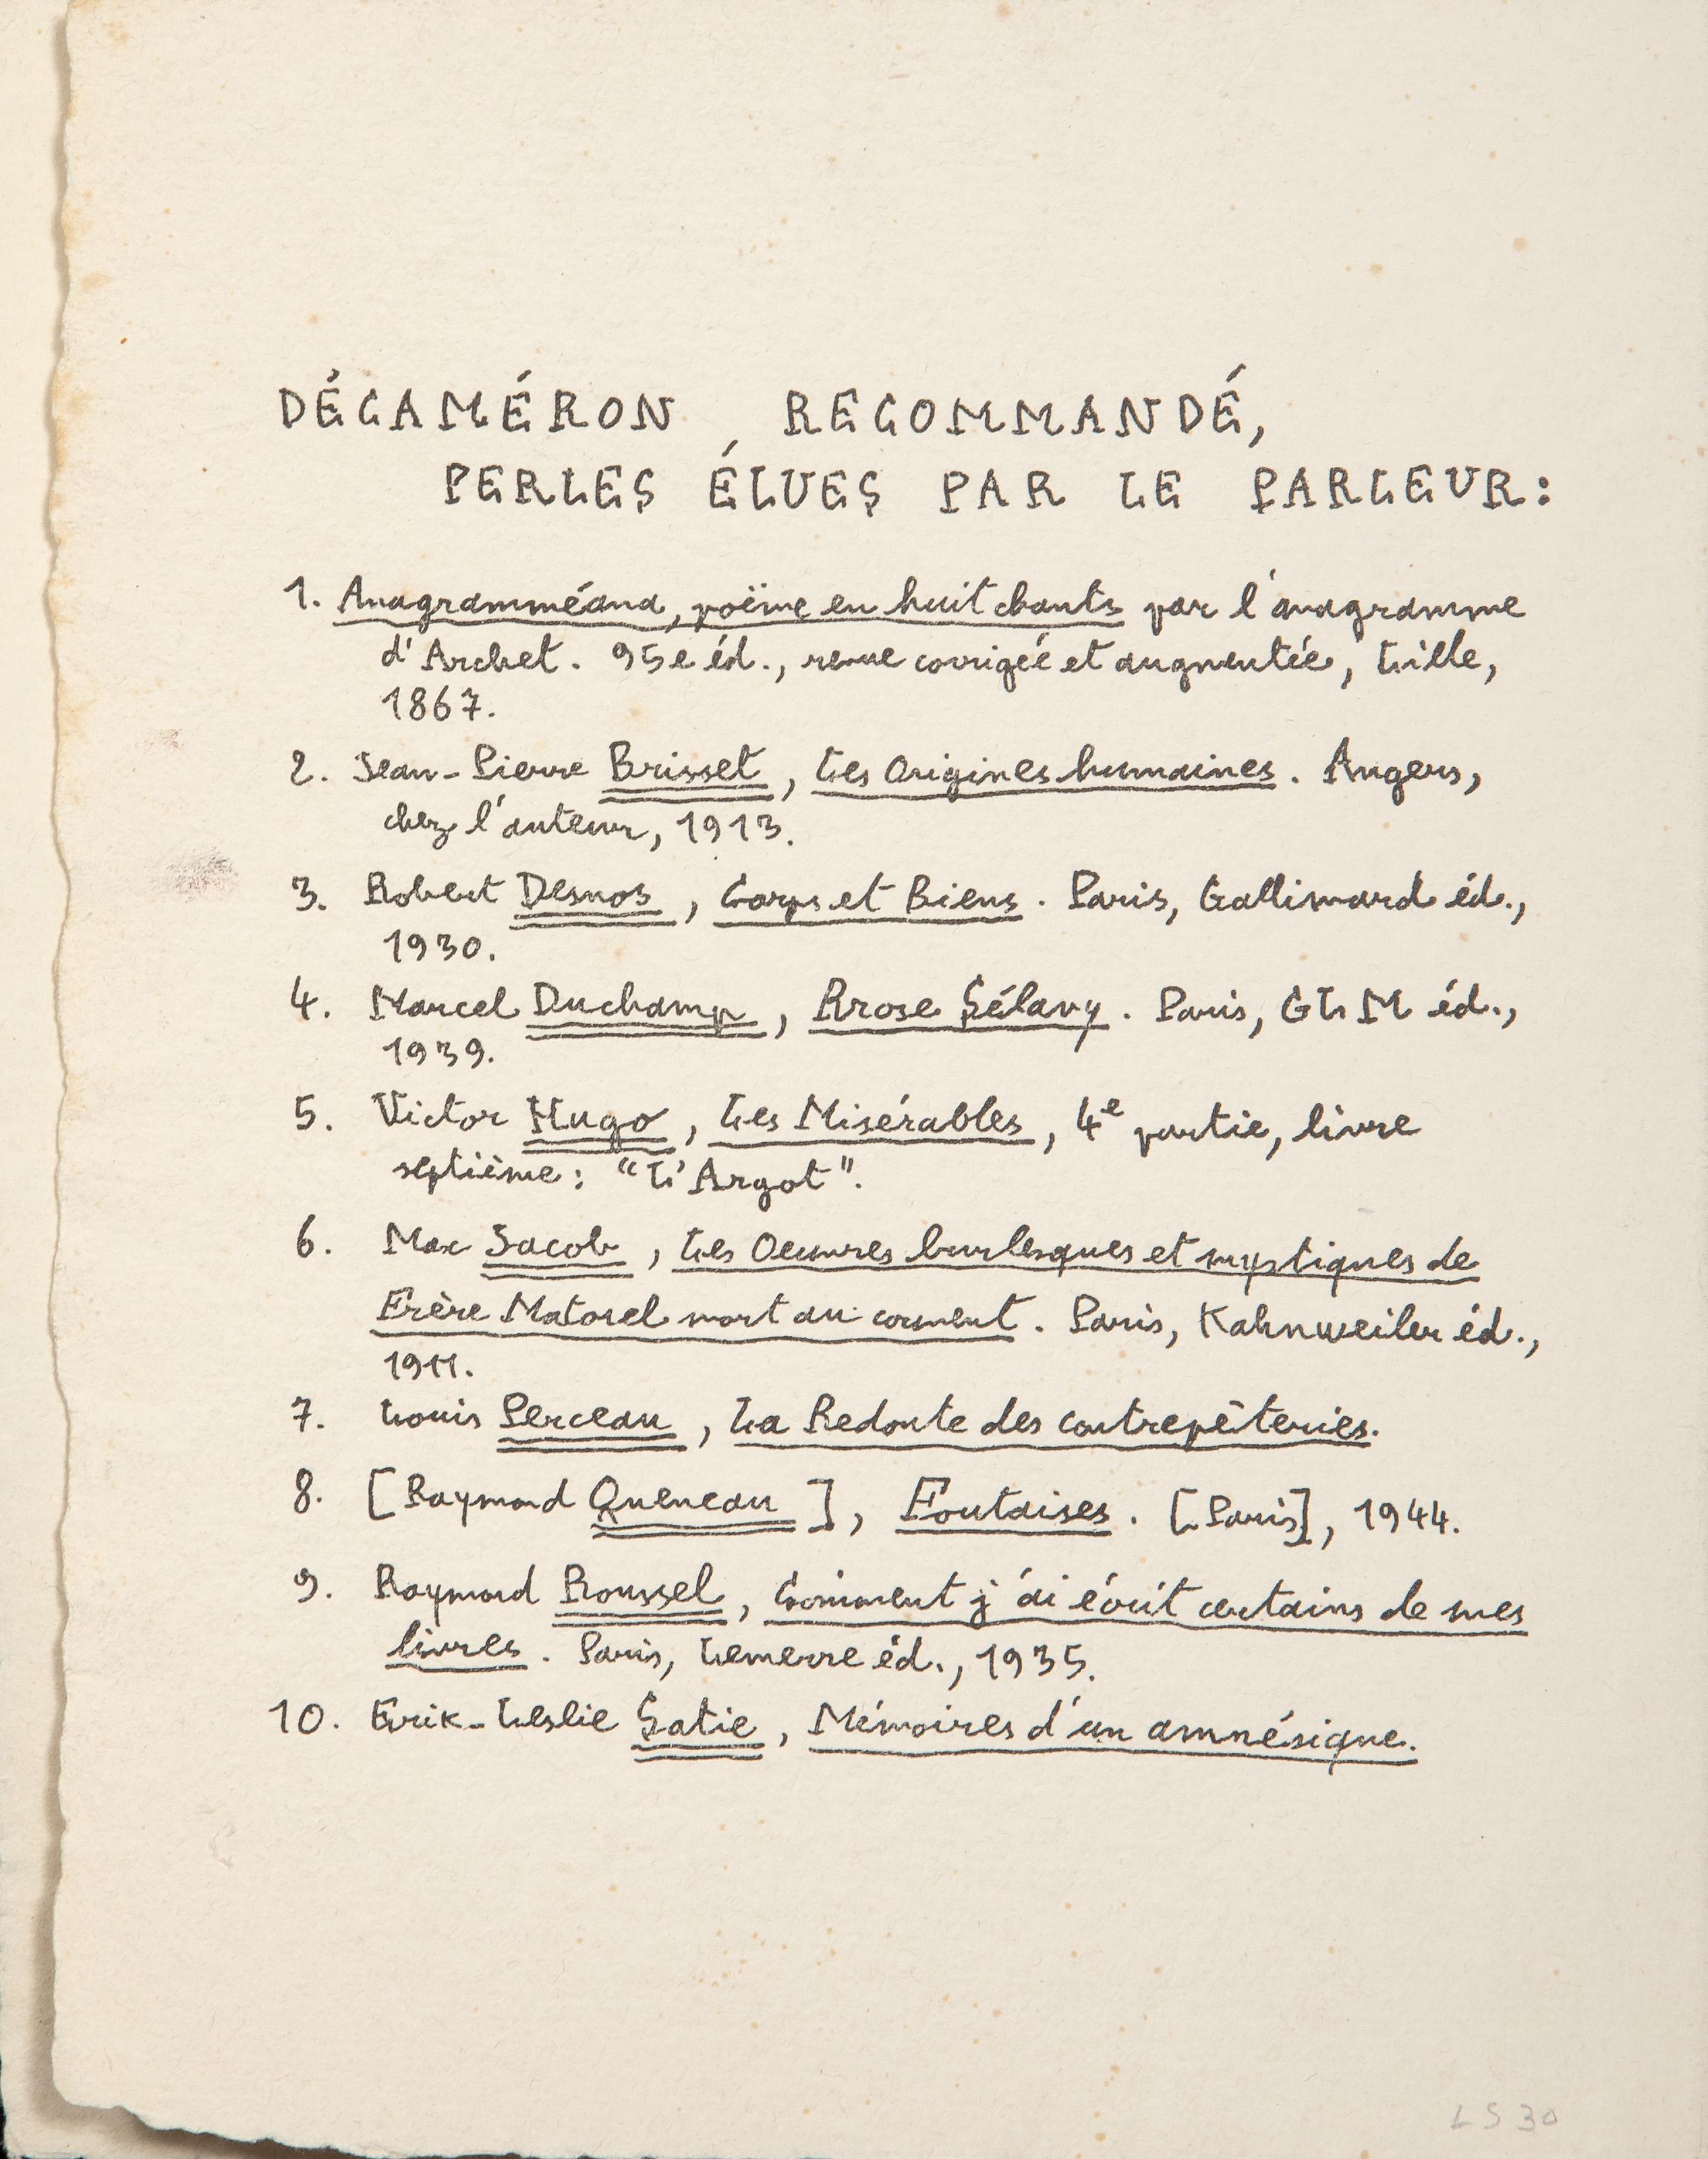 DÉCAMÉRON RECOMMANDÉ,
PERLES ÉLUES PAR LE PARLEUR:
1. Anagramméana, poëme en huit chants par l'anagramme
d'Archet. 95e éd., revue corrigée et augmentée, Lille,
1867.
2. Jean-Pierre Brisset, Les Origines humaines. Angers,
chez l'auteur, 1913.
3. Robert Desnos, Corps et Biens. Paris, Gallimard éd.,
1930.
4. Marcel Duchamp, Rrose Sélavy. Paris, GLM éd.,
1939.
5. Victor Hugo, Les Misérables, 4e partie, livre
septième: "L'Argot".
6. Max Jacob, Les Oeuvres burlesques et mystiques de
Frère Matorel mort au couvent. Paris, Kahnweiler éd.,
1911.
7. Louis Perceau, La Redoute des contrepèteries.
8. [Raymond Queneau], Foutaises. [Paris], 1944.
9. Raymond Roussel, Comment j'ai écrit certains de mes
livres. Paris, Lemerre éd., 1935.
10. Erik-Leslie Satie, Mémoires d'un amnésique.
LS 30